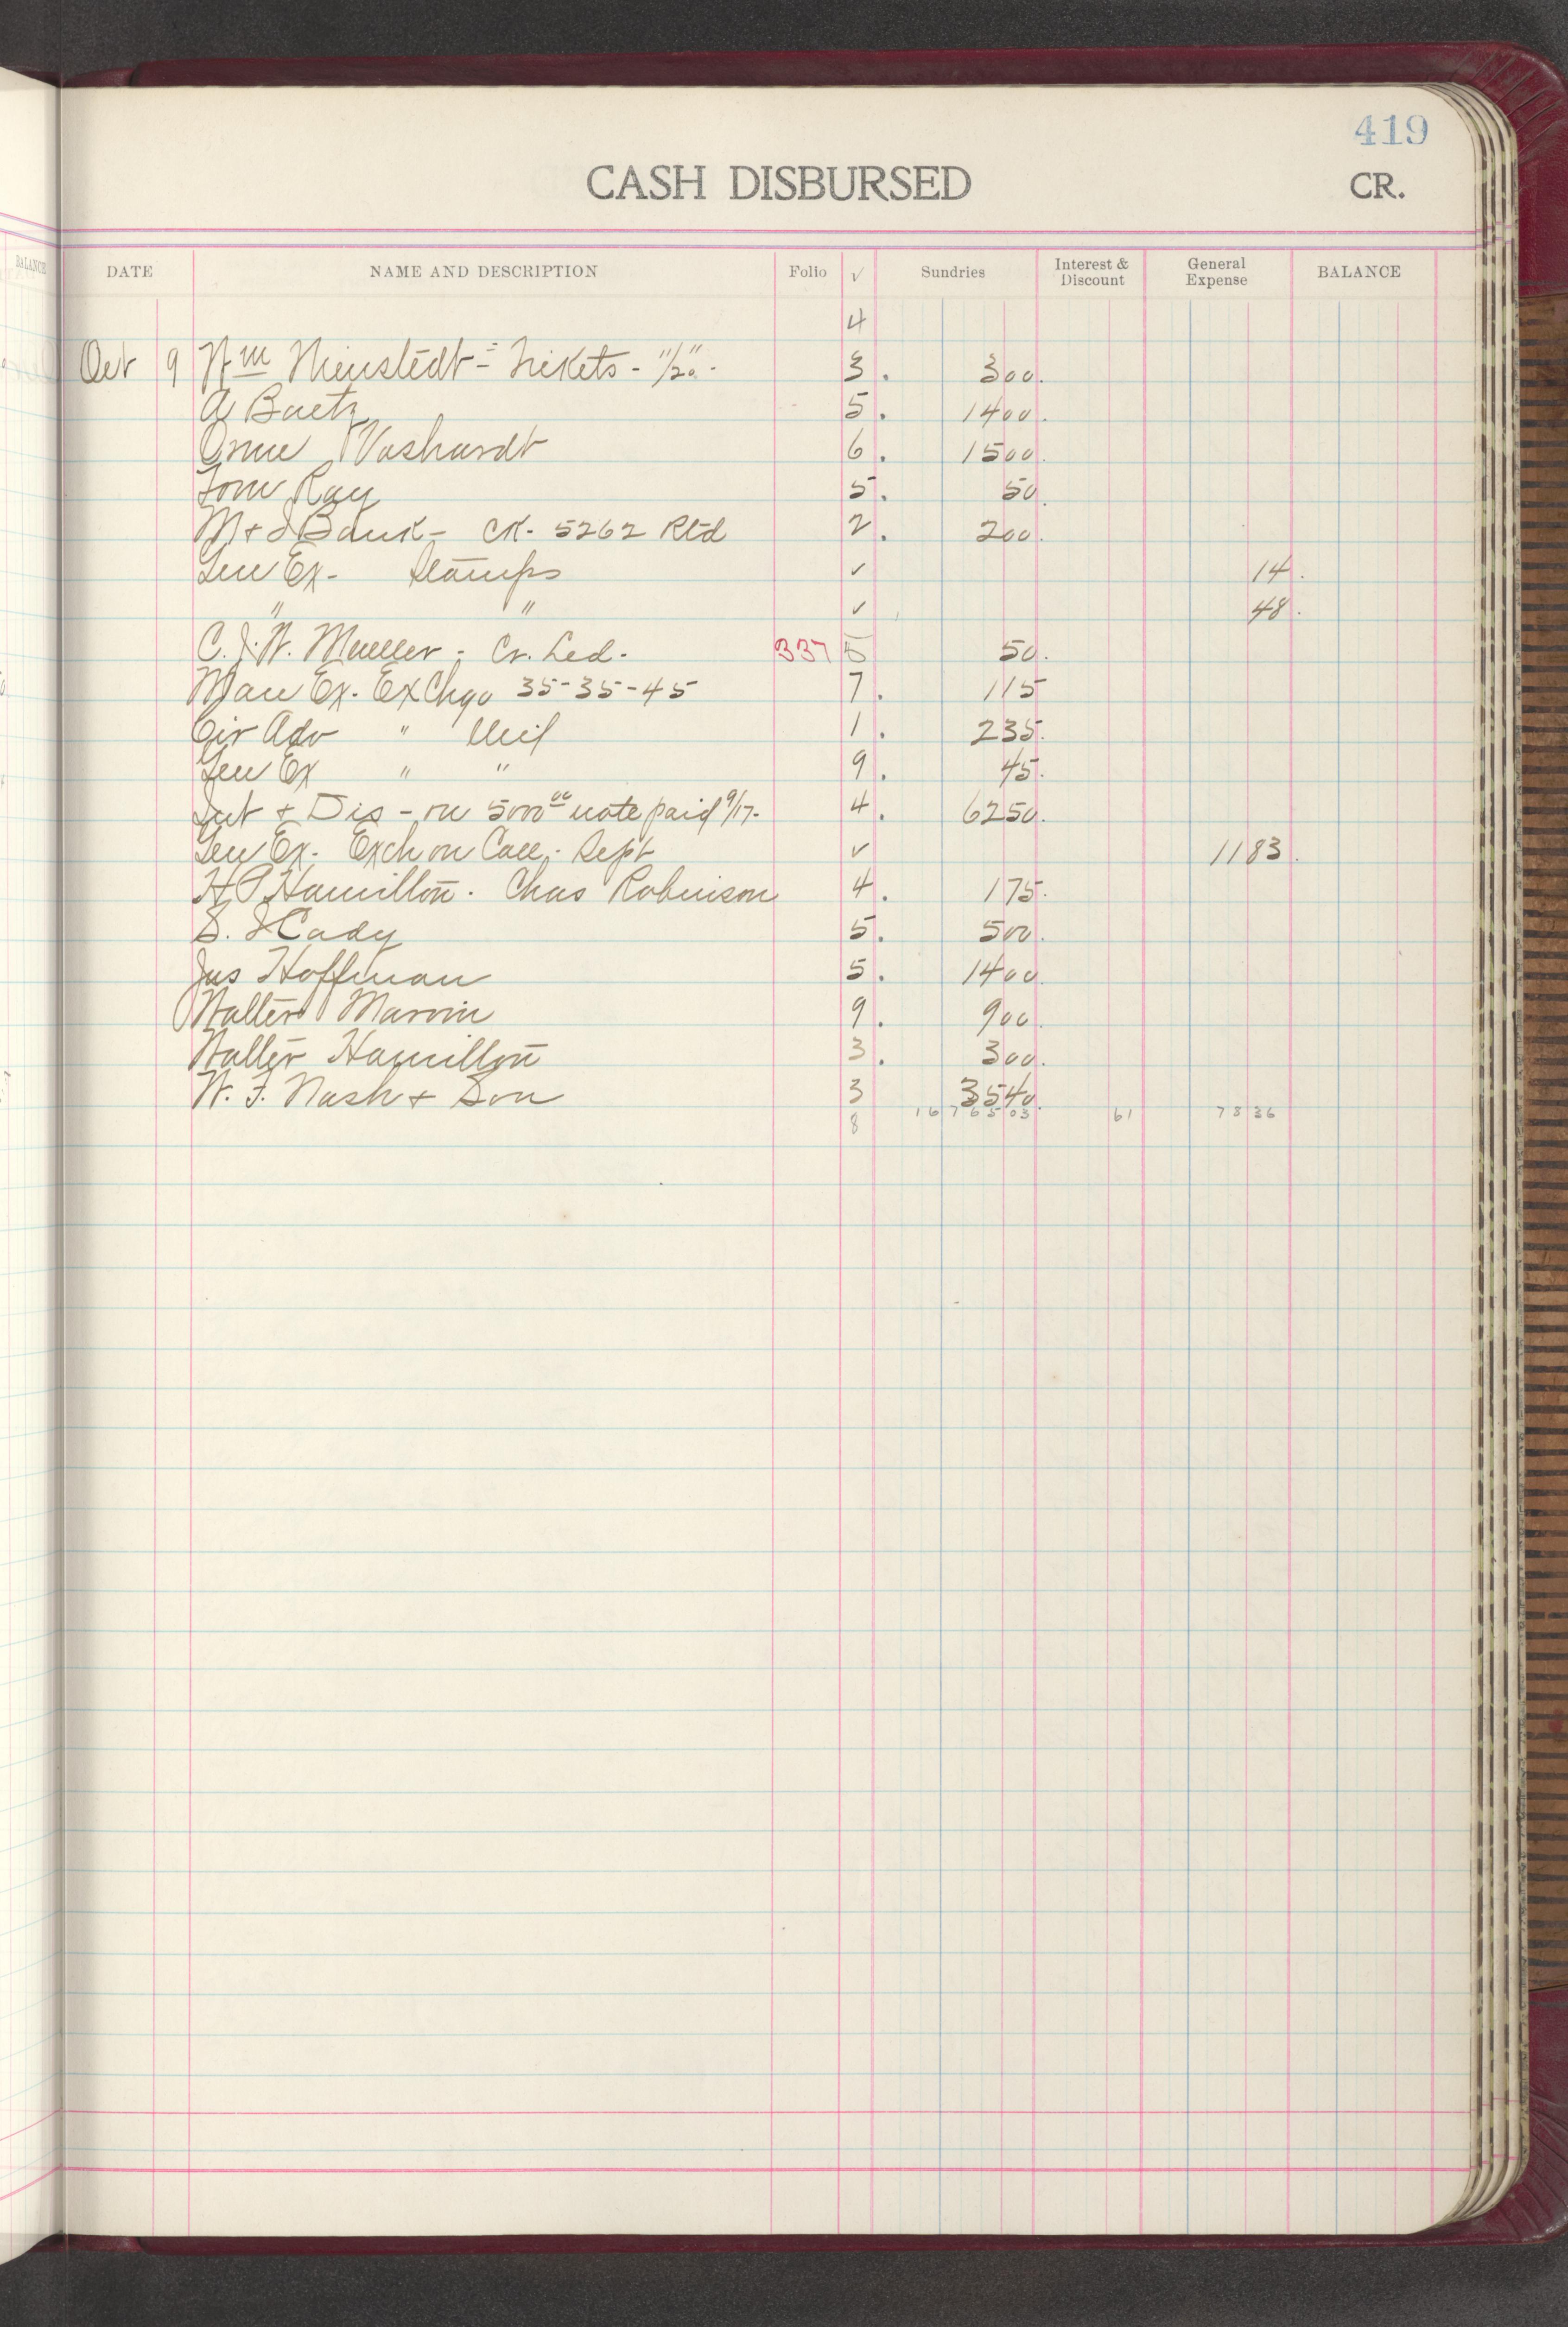 419
CASH DISBURSED CR.
BALANCE DATE NAME AND DESCRIPTION Folio ✓ Sundries Interest & Discount General Expense BALANCE
4
Oct 9 Wm Nienstedt - Tickets - 11/20 - 3. 300.
A Baetz 5. 1400.
6. 1500.
Tom Ray 5. 50.
M + J Bank - CK. 5262 Rtd 2. 200.
Gen Ex - Stamps ✓ 14.
" " ✓ 48.
C. J. W. Mueller - Cr. Led. 337 5 50.
Man Ex. Ex Chgo 35-35-45 7. 115
Cir Adv " Mil 1. 235.
Gen Ex " " 9. 45.
Int + Dis - on 5000 00 note paid 9/17 - 4. 6250.
Gen Ex. Exch on Coll - Sept ✓ 1183.
H P Hamilton. Chas Robinson 4. 175.
S. J Cady 5. 500.
Jas Hoffman 5. 1400.
Walter Marvin 9. 900.
Walter Hamilton 3. 300.
W. F. Nash + Son 3 3540.
8 1676503 61 7836